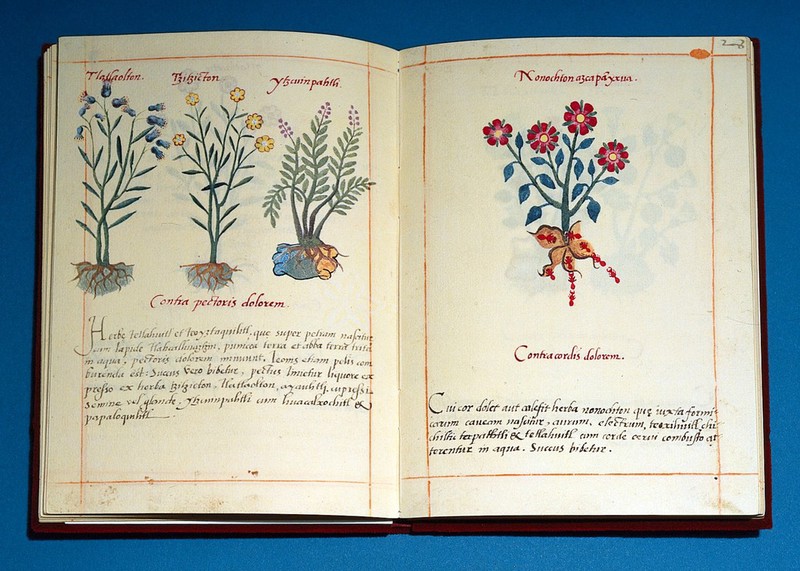 Tlatlaolton. Tzitzicton Ytzcuinpahtli.
Contra pectoris dolorem.
Herbe tetlahuitl et teoyztaquilitl, que super petram nascitur
cum lapide tlahcalhuatzin, punicea terra et alba terra trita
in aqua, pectoris dolorem minuunt. Leonis etiam pelis com
burenda est. Succus vero bibetur, pectus linietur liquore ex
presso ex herba tzitzicton, tlatlaolton, ayauhtli, cupressi
semine vel glande, ytzcuinpahtli cum huacalxochitl &
papaloquilitl
Nonochton azcapanyxua.
Contra cordis dolorem.
Cui cor dolet aut calefit, herba nonochton que iuxta formi
carum caveam nascitur, aurum, electrum, teoxihuitl, chi
chiltic tapachtli & tetlahuitl cum corde cervi combusto at
terentur in aqua. Succus bibetur.